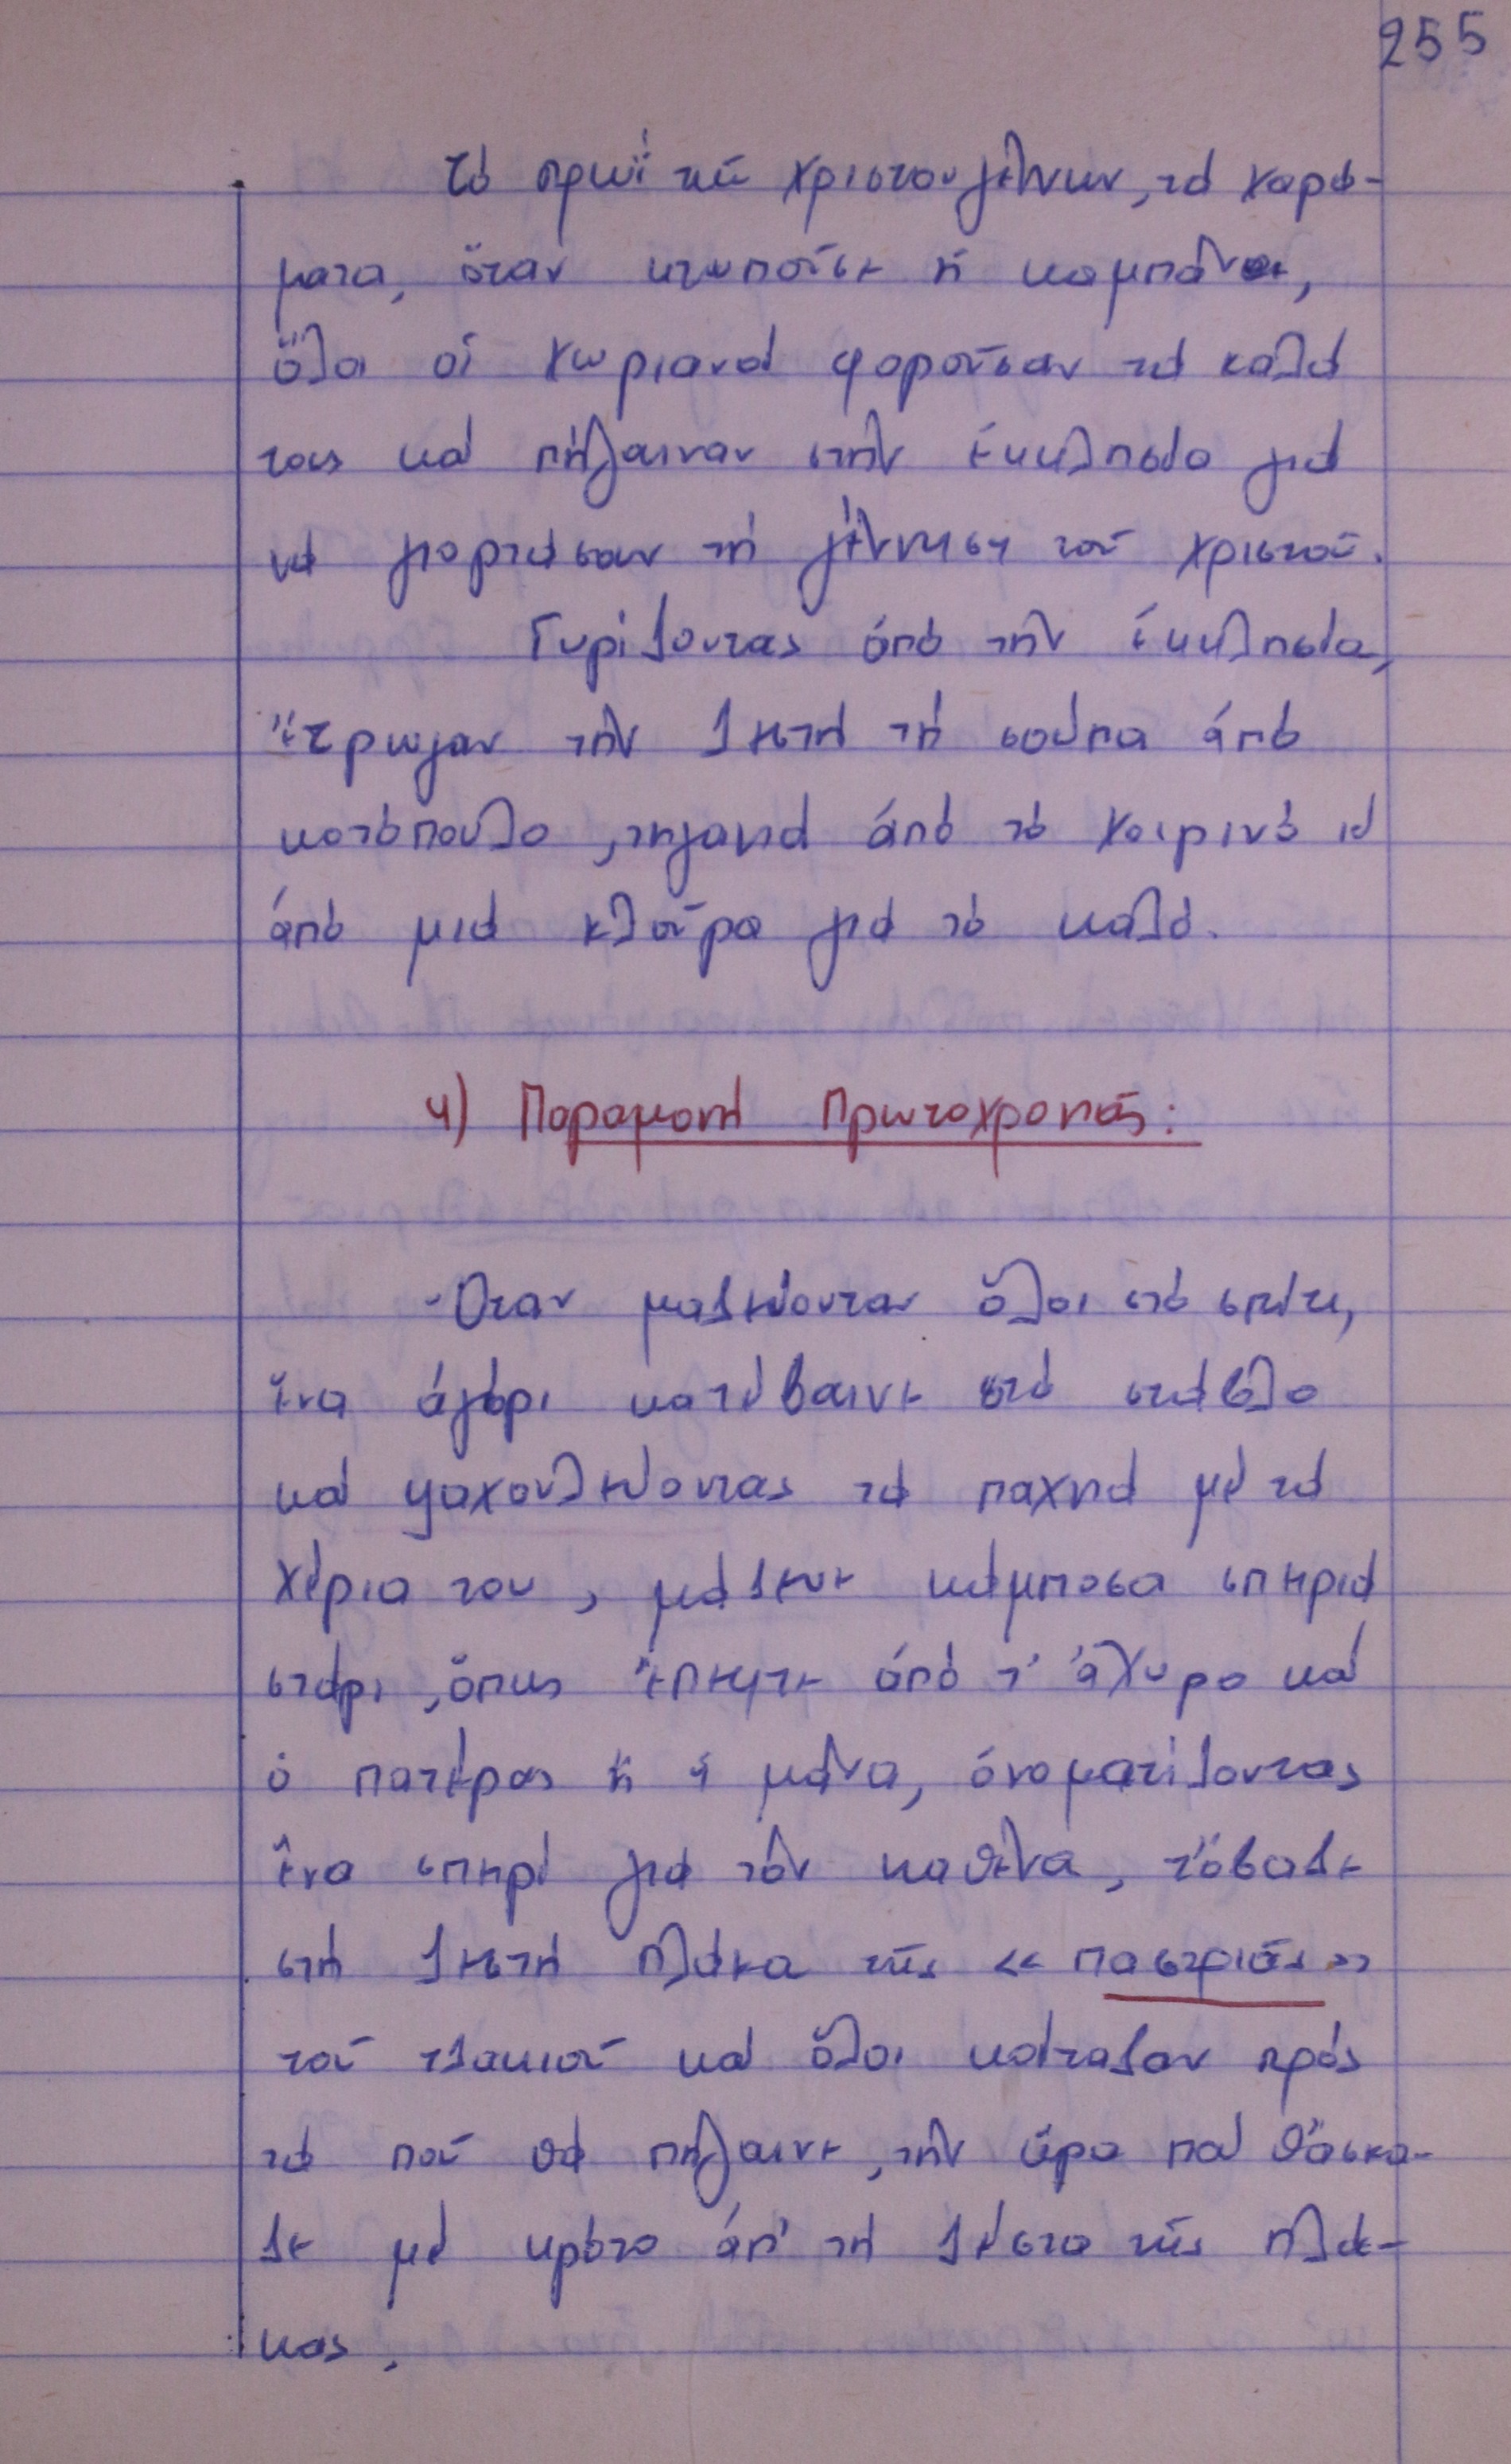 255
Τό πρωΐ τῶν Χριστουγέννων, τά χαρά-
ματα, ὅταν κτυποῦσε ἡ καμπάνα,
ὅλοι οἱ χωριανοί φοροῦσαν τά καλά
τους καί πήγαιναν στήν ἐκκλησία γιά
νά γιορτάσουν τή γέννηση τοῦ Χριστοῦ.
Γυρίζοντας ἀπό τήν ἐκκλησία,
ἔτρωγαν τήν ζεστή τή σούπα ἀπό
κοτόπουλο, τηγανιά ἀπό τό χοιρινό κι
ἀπό μιά κλούρα γιά τό καλό.
4) Παραμονή Πρωτοχρονιᾶς:
-Όταν μαζεύονταν ὅλοι στό σπίτι,
ἕνα ἀγόρι κατέβαινε στό στάβλο
καί ψαχουλεύοντας τά παχνιά μέ τά
χέρια του, μάζευε κάμποσα σπειριά
στάρι, ὅπως ἔπεφτε ἀπό τ' ἄχυρο καί
ὁ πατέρας ἤ ἡ μάνα, ὀνοματίζοντας
ἕνα σπειρί γιά τόν καθένα, τὄβαζε
στή ζεστή πλάκα τῆς «παστριᾶς»
τοῦ τζακιοῦ καί ὅλοι κοίταζαν πρός
τά ποῦ θά πήγαινε, τήν ὥρα πού θἄσκα-
ζε μέ κρότο ἀπ' τή ζέστα τῆς πλά-
κας.